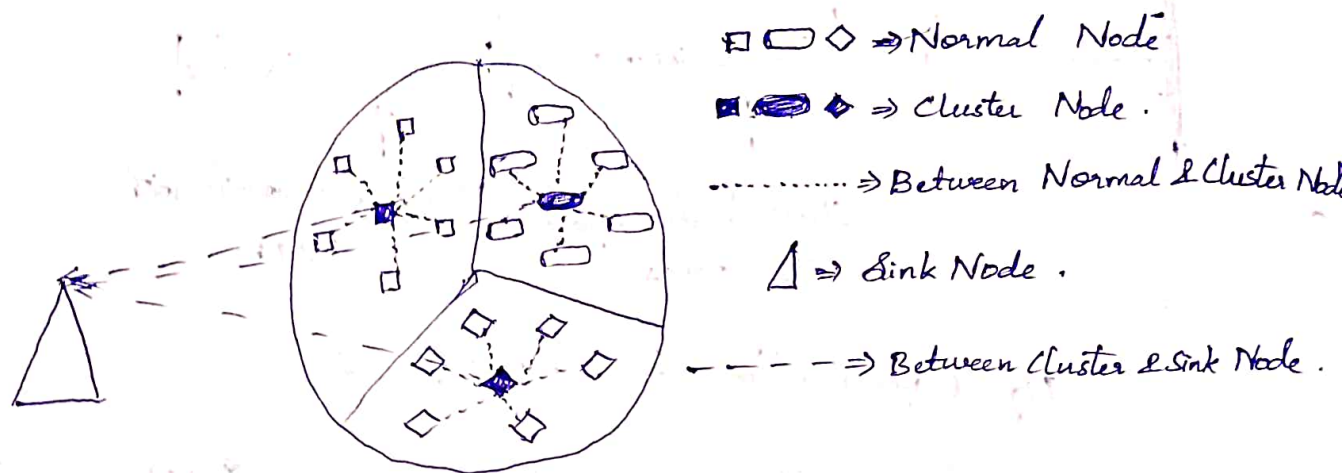 ⇒ Normal Node
⇒ Cluster Node .
⇒ Between Normal & Cluster Node
⇒ Sink Node .
⇒ Between Cluster & Sink Node .